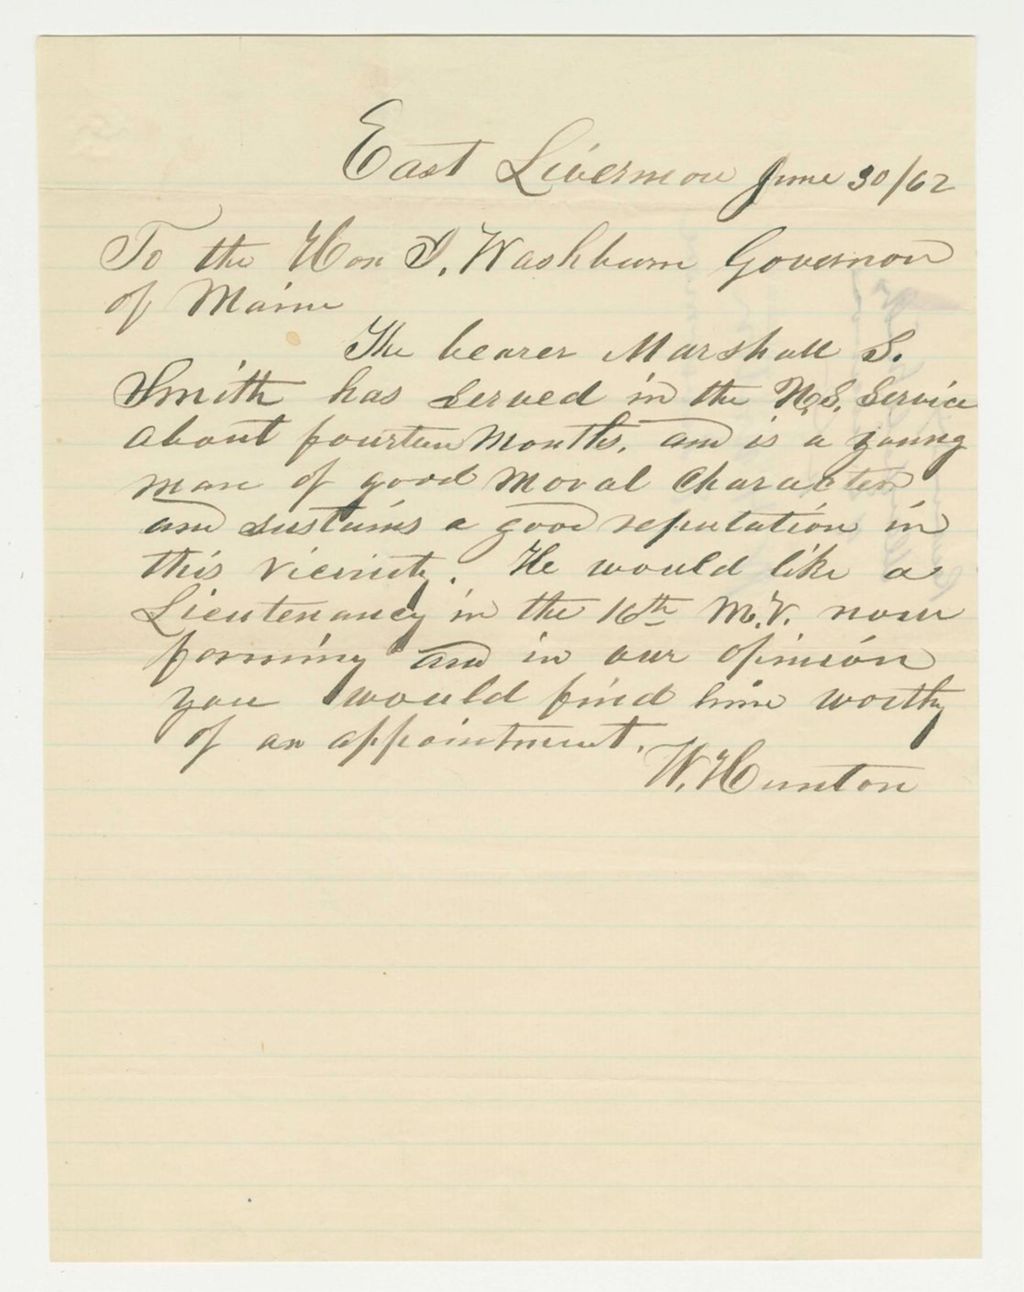 East Livermore June 30/62
To the Hon I. Washburn Governor
of Maine
The bearer Marshall S.
Smith has served in the U.S. Service
about fourteen Months. and is a young
man of good Moral Character
and sustains a good reputation in
this vicinity. He would like a
Lieutenancy in the 16th M.V. now
forming and in our opinion
you would find him worthy
of an appointment.
W. Hunton